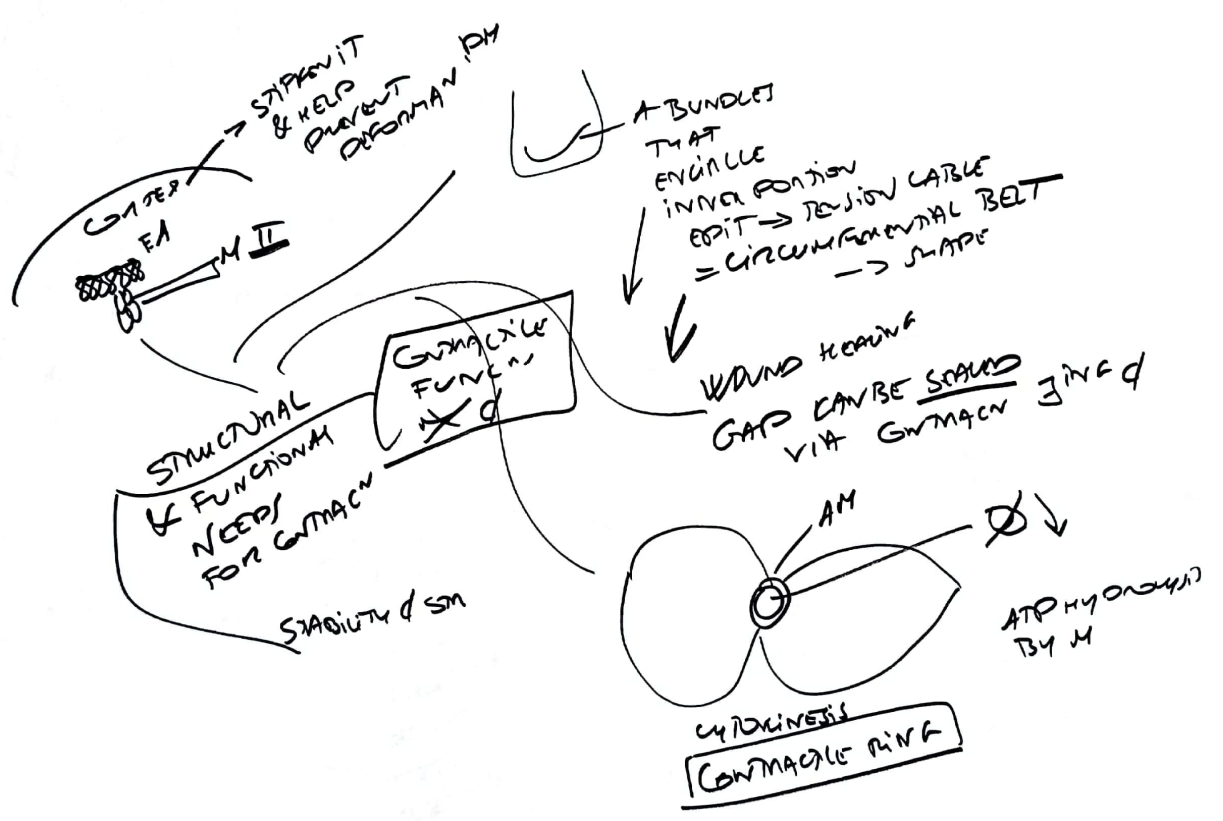 → STIFFEN IT
& HELP
PREVENT
DEFORMAN
CORTEX
FA
M II
A BUNDLES
THAT
ENCIRCLE
INNER PORTION
EPIT → TENSION CABLE
= CIRCUMFERENTIAL BELT
→ SHAPE
CONTRACTILE
FUNCNS
STRUCTURAL
& FUNCTIONAL
NEEDS
FOR CONTRACN
STABILITY
WOUND HEALING
GAP CAN BE SEALED
VIA CONTRACN
AM
Ø ↓
ATP HYDROLYSIS
BY M
CYTOKINESIS
CONTRACTILE RING